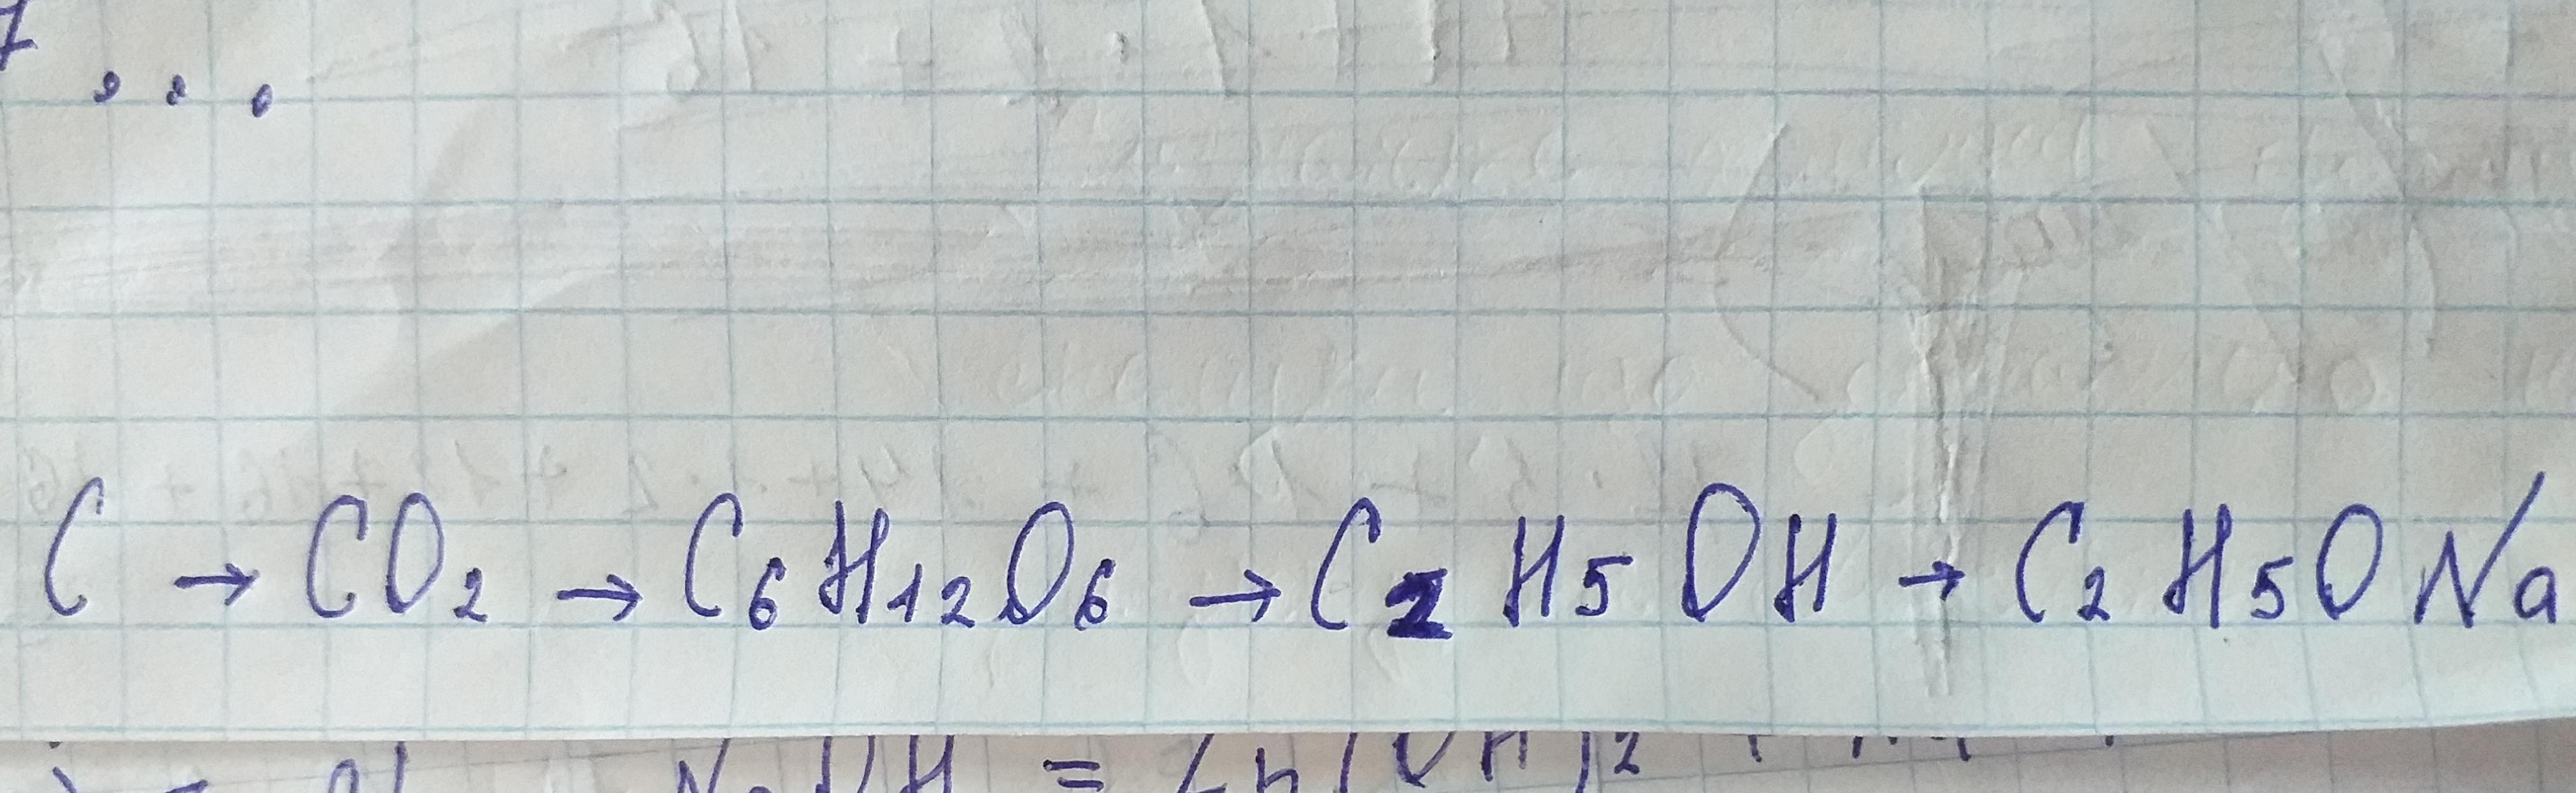 ...
C → CO₂ → C₆H₁₂O₆ → C₂H₅OH → C₂H₅ONa
NaOH = Zn(OH)₂ +